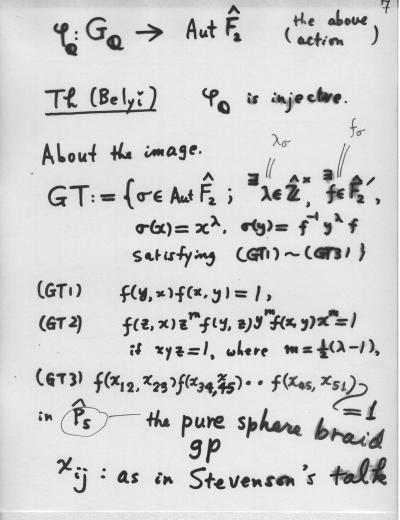 7
φ_Q : G_Q → Aut F̂₂ (the above action)
Th (Belyi) φ_Q is injective.
About the image.
λσ fσ
GT := {σ ∈ Aut F̂₂ ; ∃λ ∈ Ẑ^×, ∃f ∈ F̂₂′,
σ(x) = x^λ, σ(y) = f⁻¹ y^λ f
satisfying (GT1) ~ (GT3) }
(GT1) f(y,x) f(x,y) = 1,
(GT2) f(z,x) z^m f(y,z) y^m f(x,y) x^m = 1
if xyz = 1, where m = ½(λ-1),
(GT3) f(x₁₂, x₂₃) f(x₃₄, x₄₅) ·· f(x₄₅, x₅₁)
= 1
in P̂₅ — the pure sphere braid
gp
x_ij : as in Stevenson's talk